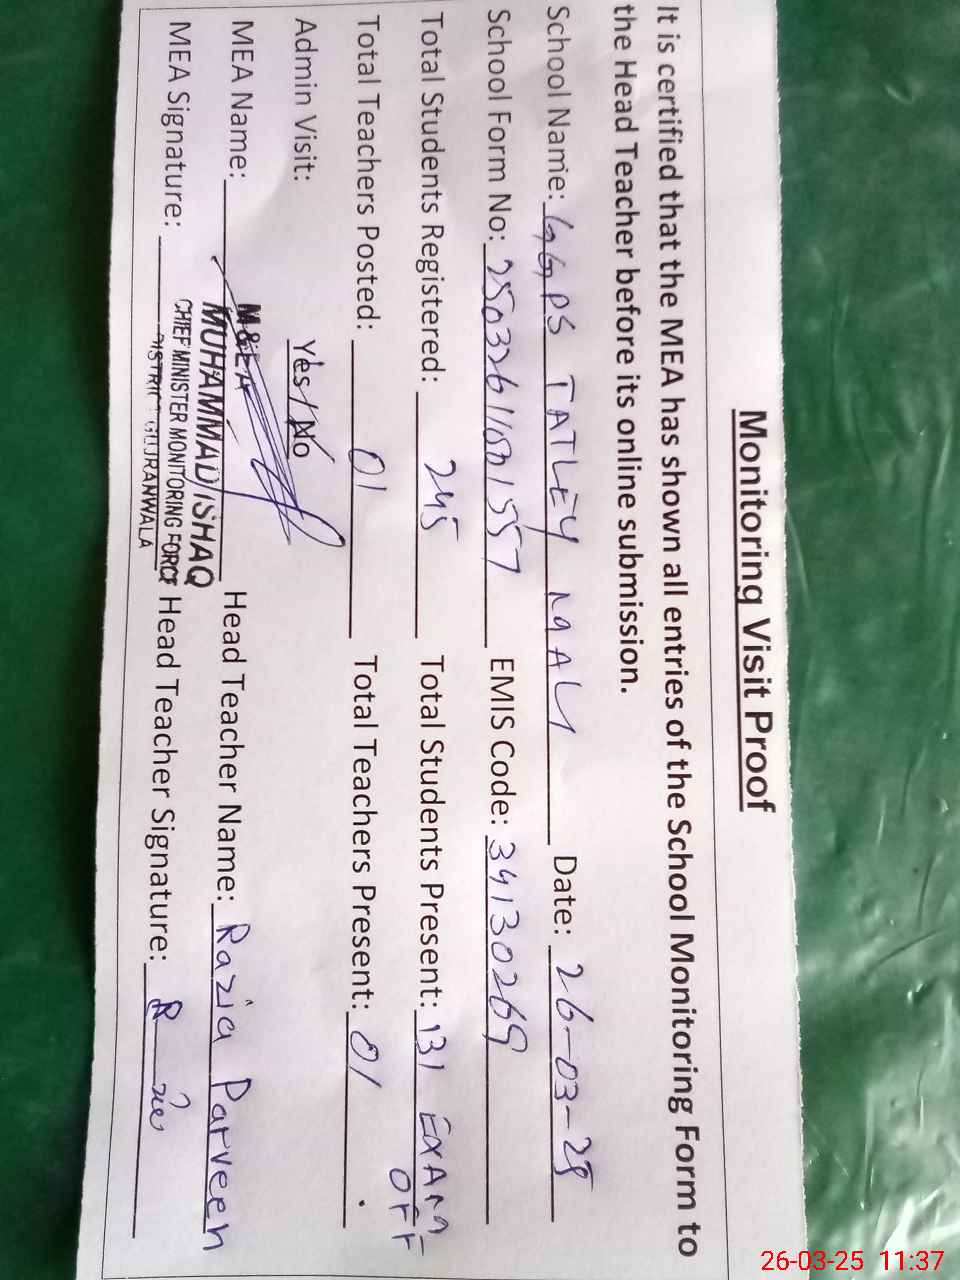 Monitoring Visit Proof
It is certified that the MEA has shown all entries of the School Monitoring Form to
the Head Teacher before its online submission.
School Name: GGPS TATLEY MALI Date: 26-03-25
School Form No: EMIS Code: 34130269
Total Students Registered: 245 Total Students Present: 131 EXAM OFF
Total Teachers Posted: 01 Total Teachers Present: 01
Admin Visit: Yes / No
MEA Name: Head Teacher Name: Razia Parveen
MEA Signature: Head Teacher Signature:
M&EA
MUHAMMAD ISHAQ
CHIEF MINISTER MONITORING FORCE
DISTRICT GUJRANWALA
26-03-25 11:37